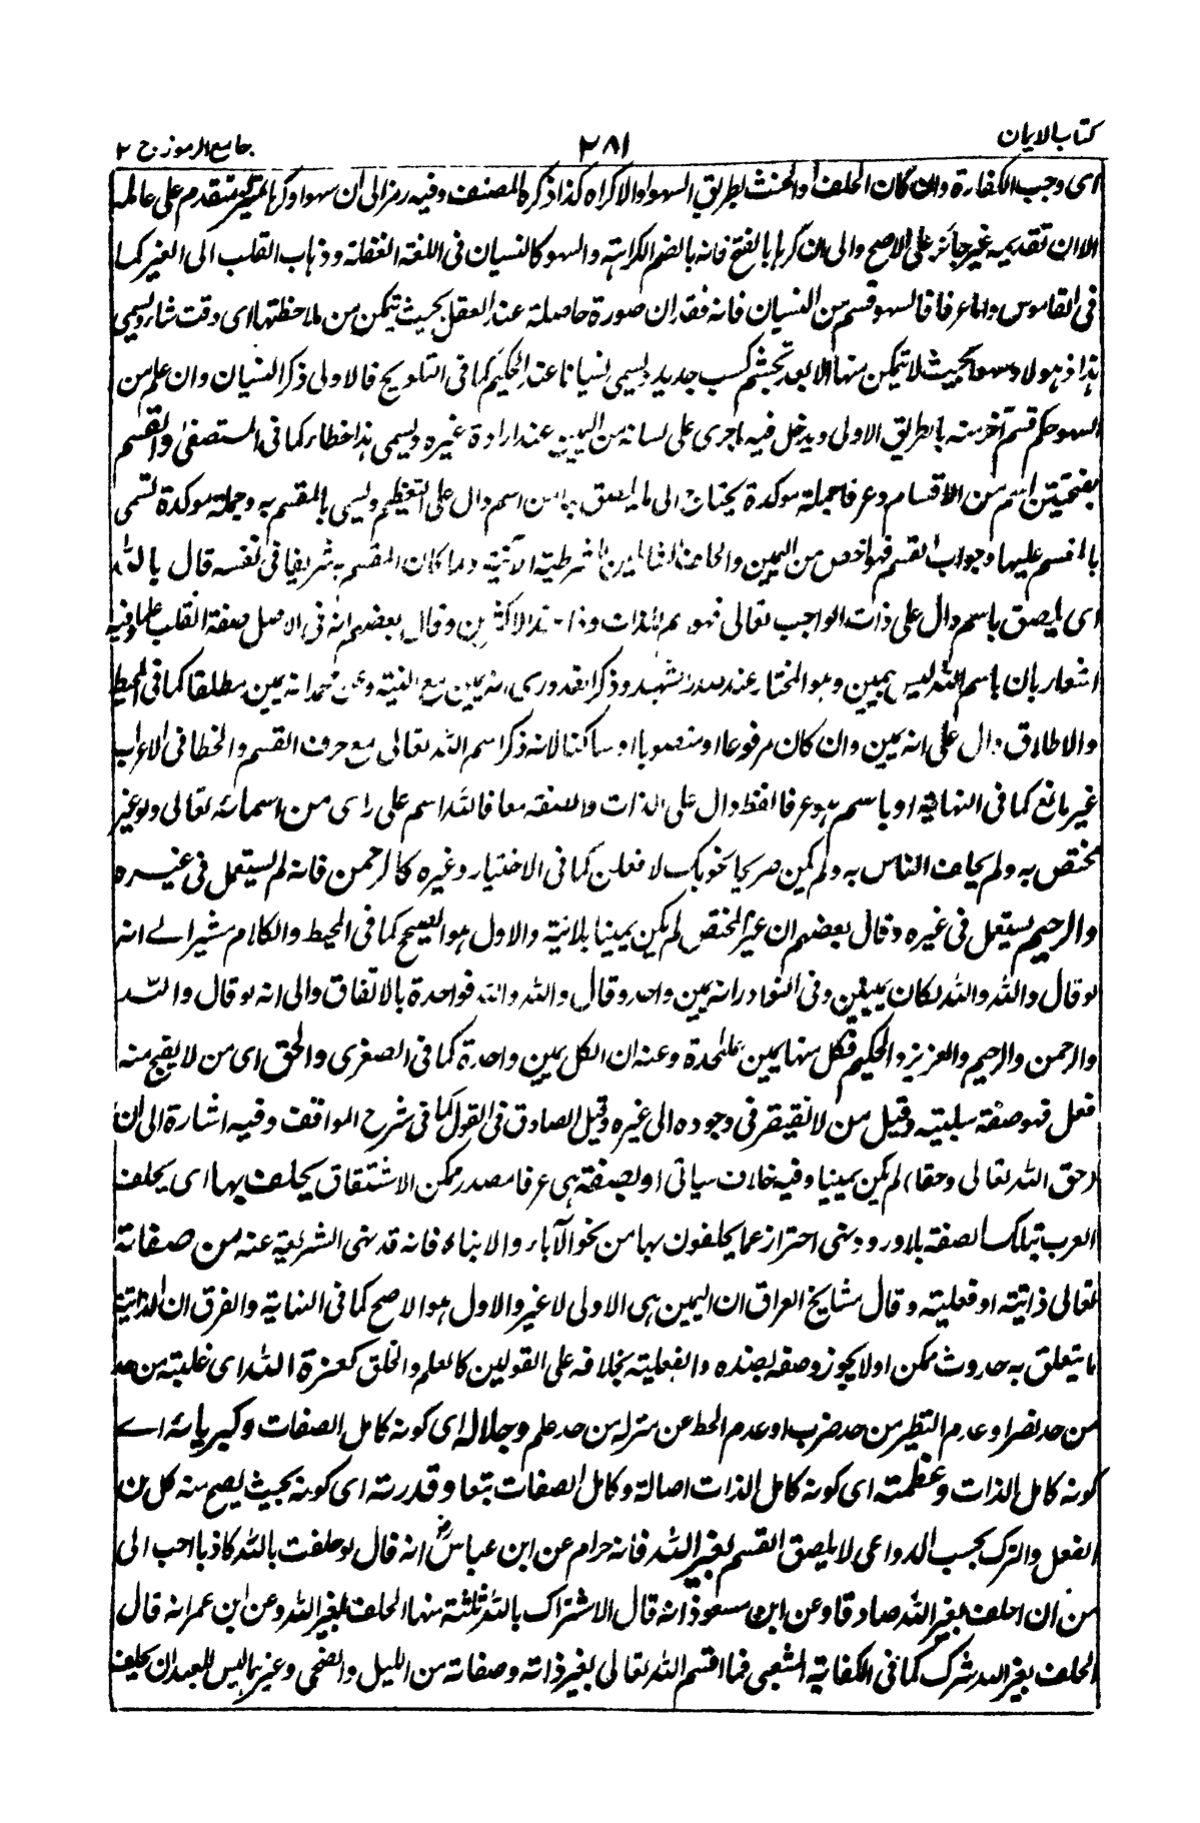 كتاب الايمان
٢٨١
جامع الرموز ج ٢
اى وجب الكفارة وان كان الحلف او الحنث بطريق السهو او الاكراه كذا ذكره المصنف وفيه رمز الى ان سهوا وكرها تمييز متقدم على عامله
الا ان تقديمه غير جائز على الاصح والى ان كرها بالفتح فانه بالضم الكراهة والسهو كالنسيان فى اللغة الغفلة وذهاب القلب الى الغير كما
فى القاموس واما عرفا فالسهو قسم من النسيان فانه فقدان صورة حاصلة عند العقل بحيث يتمكن من ملاحظتها اى وقت شاء ويسمى
هذا ذهولا وسهوا بحيث لا يتمكن منها الا بعد تجشم كسب جديد ويسمى نسيانا عند الحكيم كما فى التلويح فالاولى ذكر النسيان وان علم من
السهو حكم قسم آخر منه بالطريق الاولى ويدخل فيه ما جرى على لسانه من اليمين عند ارادة غيره ويسمى هذا خطاء كما فى المستصفى والقسم
بفتحتين اسم من الاقسام وعرفا جملة موكدة يحتاج الى ما يلصق بها من اسم دال على التعظيم ويسمى بالمقسم به وجملة موكدة تسمى
بالمقسم عليها وجواب القسم فهو اخص من اليمين والحلف الشاملين للشرطية الآتية ولما كان المقسم به شريفا فى نفسه قال بالله
اى يلصق باسم دال على ذات الواجب تعالى فهو اسم للذات وذا عند الاكثرين وقال بعضهم انه فى الاصل صفة انقلب علما وفيه
اشعار بان باسم الله ليس بيمين وهو المختار عند صدر الشهيد وذكر القدورى انه يمين مع النية وعن محمد انه يمين مطلقا كما فى المحيط
والاطلاق دال على انه يمين وان كان مرفوعا او منصوبا او ساكنا لانه ذكر اسم الله تعالى مع حرف القسم والخطا فى الاعراب
غير مانع كما فى النهاية او باسم هو عرفا لفظ دال على الذات والصفة معا فالله اسم على راى من اسمائه تعالى ولو غير
مختص به ولم يحلف الناس به ولم يكن صريحا نحو بك لا فعلن كما فى الاختيار وغيره كالرحمن فانه لم يستعمل فى غيره
والرحيم يستعمل فى غيره وقال بعضهم ان غير المختص لم يكن يمينا بلا نية والاول هو الصحيح كما فى المحيط والكلام مشير الى انه
لو قال والله والله لكان يمينين وفى النوادر انه يمين واحد وقال والله والله فواحدة بالاتفاق والى انه لو قال والله
والرحمن والرحيم والعزيز والحكيم فكل منها يمين علىحدة وعنه ان الكل يمين واحدة كما فى الصغرى والحق اى من لا يقبح منه
فعل فهو صفة سلبية وقيل من لا يفتقر فى وجوده الى غيره وقيل الصادق فى القول كما فى شرح المواقف وفيه اشارة الى ان
(حق الله تعالى وحقا) لم يكن يمينا وفيه خلاف سياتى او بصفة هى عرفا مصدر ممكن الاشتقاق يحلف بها اى يحلف
العرب بتلك الصفة بلا ورود نهى احتراز عما يحلفون بها من نحو الآباء والابناء فانه قد نهى الشريعة عنه من صفاته
تعالى ذاتية او فعلية وقال مشايخ العراق ان اليمين هى الاولى لا غير والاول هو الاصح كما فى النهاية والفرق ان الذاتية
ما يتعلق به حدوث ممكن اولا يجوز وصفه بضده والفعلية بخلافه على القولين كالعلم والخلق كعزة الله اى غلبته من حد
من حد نصر او عدم النظير من حد ضرب او عدم الحط عن منزله من حد علم وجلاله اى كونه كامل الصفات وكبريائه اى
كونه كامل الذات وعظمته اى كونه كامل الذات اصالة وكامل الصفات تبعا وقدرته اى كونه بحيث يصح منه كل من
الفعل والترك بحسب الدواعى لا يلصق القسم بغير الله فانه حرام عن ابن عباس رض انه قال لو حلفت بالله كاذبا احب الى
من ان احلف بغير الله صادقا وعن ابن مسعود انه قال الاشتراك بالله ثلثة منها الحلف بغير الله وعن ابن عمر انه قال
الحلف بغير الله شرك كما فى الكفاية الشعبى فما اقسم الله تعالى بغير ذاته وصفاته من الليل والضحى وغيرها ليس للعبد ان يحلف